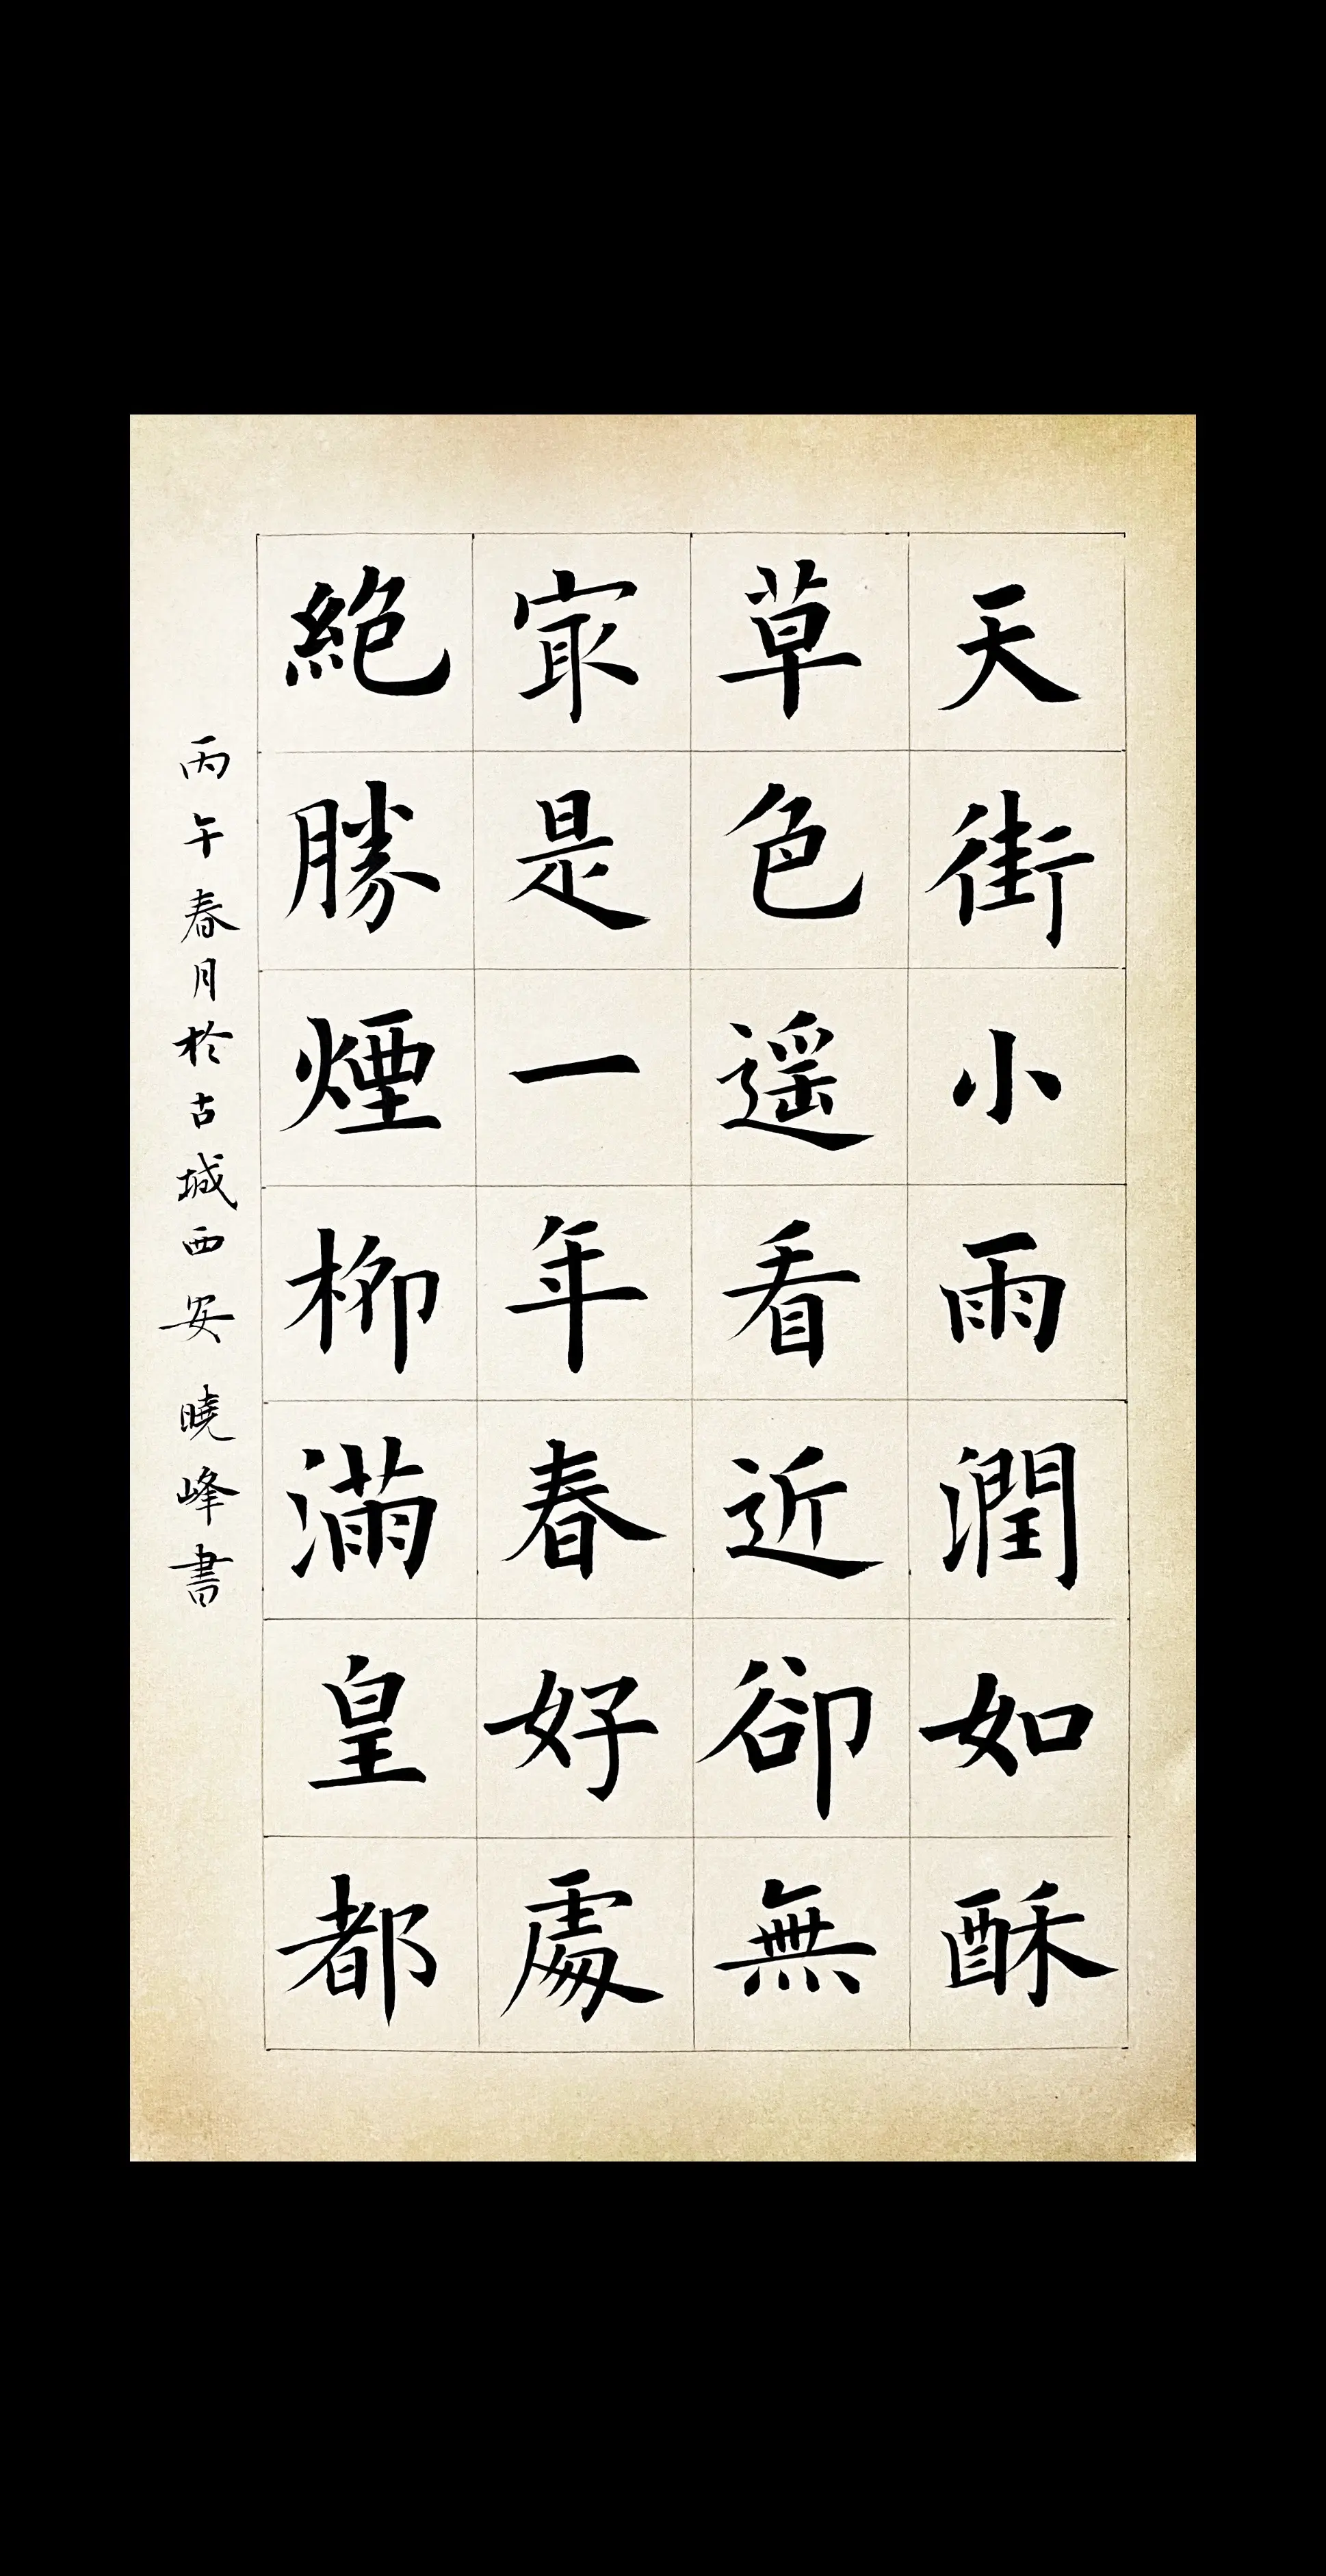 天街小雨潤如酥
草色遥看近卻無
㝡是一年春好處
絕勝煙柳滿皇都
丙午春月於古城西安 曉峰書